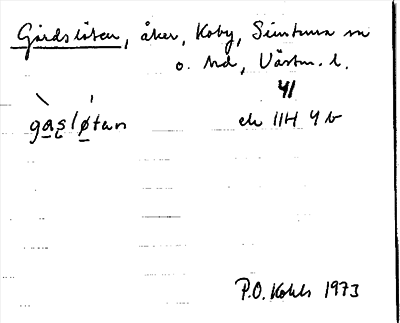 Gårdslöten, åker, Koby, Simtuna sn
o. hd, Västm. l.
41
gasløtan ek 11H 4 b
P.O. Kohls 1973